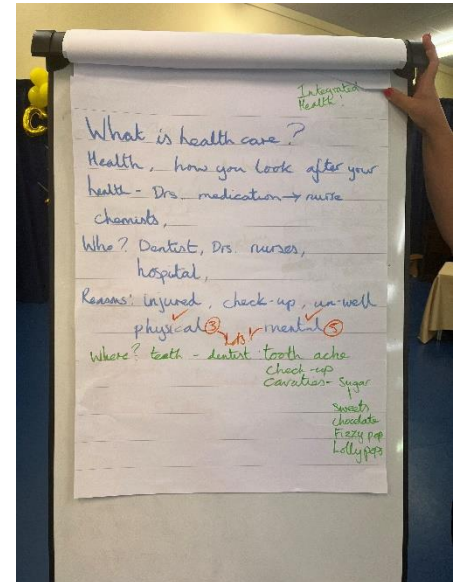 Integrated
Health!
What is health care?
Health, how you look after your
health - Drs. medication → nurse
chemists,
Who? Dentist, Drs. nurses,
hospital,
Reasons: injured, check-up, un-well
physical ✓ ③ Lots! mental ✓ ⑤
Where? teeth - dentist: tooth ache
check-up
cavaties - Sugar
Sweets
chocolate
Fizzy pop
Lolly pops